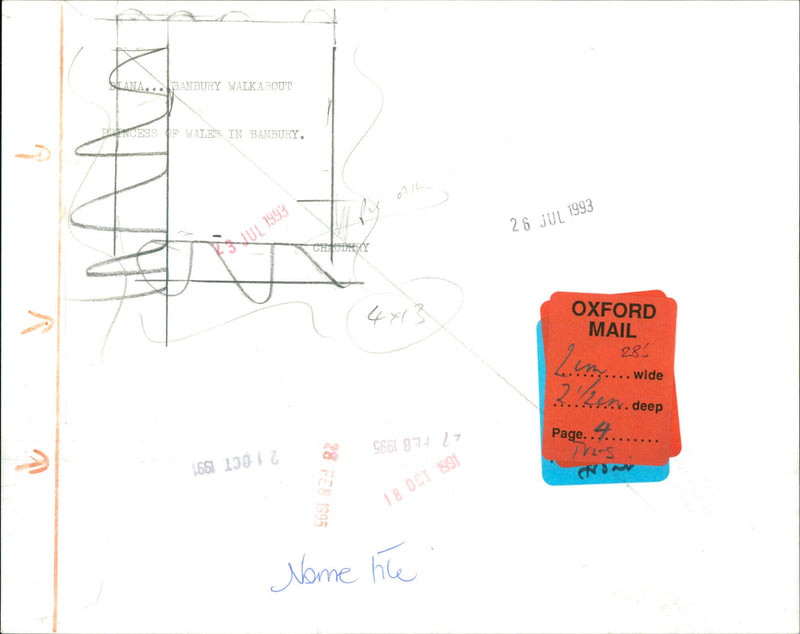 DIANA... BANBURY WALKABOUT
PRINCESS OF WALES IN BANBURY.
23 JUL 1993
26 JUL 1993
CHAUDHRY
4x13
OXFORD
MAIL
28%
2cm wide
2½cm deep
Page 4
21 OCT 1991
28 FEB 1995
27 FEB 1995
18 OCT 1991
Name file